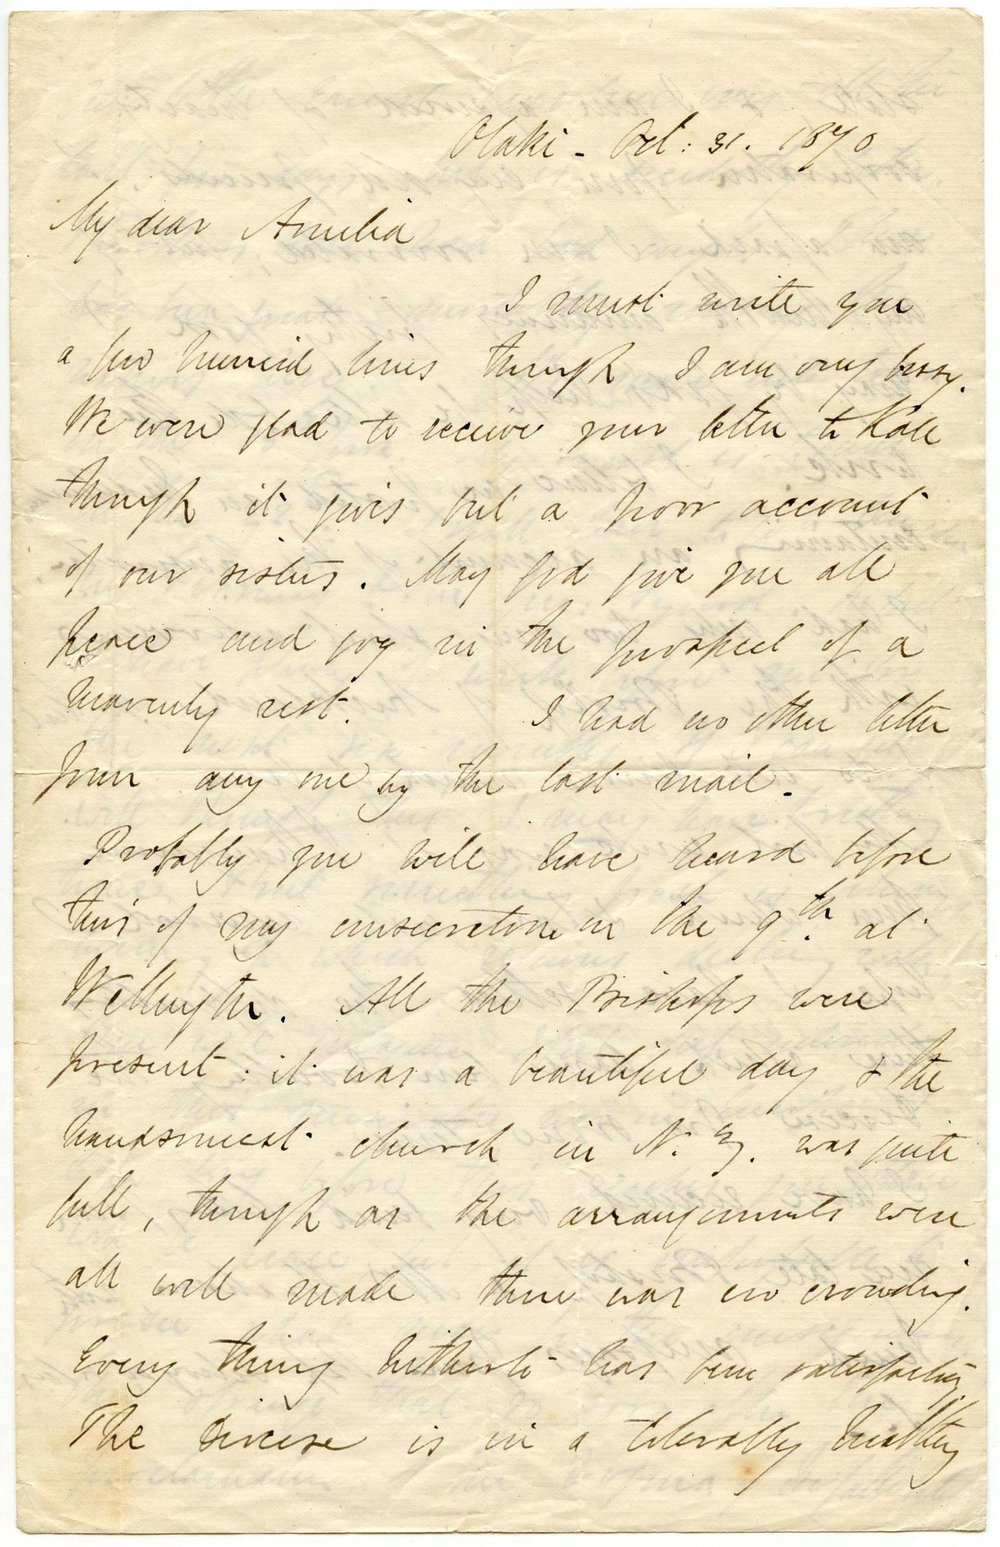 Otaki - Oct: 31. 1870
My dear Amelia
I must write you
a few hurried lines though I am very busy.
We were glad to receive your letter to Kate
though it gives but a poor account
of our sisters. May God give you all
peace and joy in the prospect of a
heavenly rest. I had no other letter
from any one by the last mail.
Probably you will have heard before
this of my consecration on the 9th. at
Wellington. All the Bishops were
present: it was a beautiful day & the
handsomest church in N. Z. was quite
full, though as the arrangements were
all well made there was no crowding.
Every thing hitherto has been satisfactory.
The diocese is in a tolerably healthy